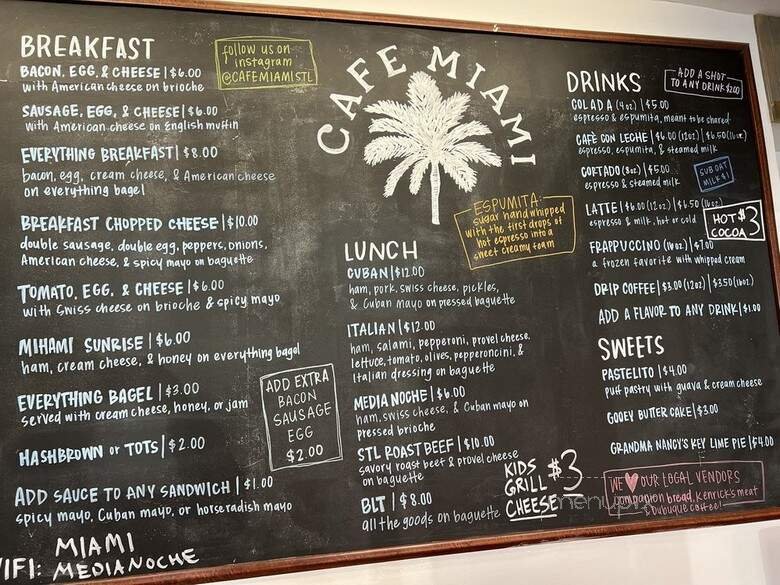 BREAKFAST
BACON, EGG, & CHEESE | $6.00
with American cheese on brioche
SAUSAGE, EGG, & CHEESE | $6.00
with American cheese on English muffin
EVERYTHING BREAKFAST | $8.00
bacon, egg, cream cheese, & American cheese
on everything bagel
BREAKFAST CHOPPED CHEESE | $10.00
double sausage, double egg, peppers, onions,
American cheese, & spicy mayo on baguette
TOMATO, EGG, & CHEESE | $6.00
with Swiss cheese on brioche & spicy mayo
MIHAMI SUNRISE | $6.00
ham, cream cheese, & honey on everything bagel
EVERYTHING BAGEL | $3.00
served with cream cheese, honey, or jam
HASHBROWN or TOTS | $2.00
ADD SAUCE TO ANY SANDWICH | $1.00
spicy mayo, Cuban mayo, or horseradish mayo
MIAMI
WIFI: MEDIANOCHE
follow us on
instagram
@CAFEMIAMISTL
ADD EXTRA
BACON
SAUSAGE
EGG
$2.00
CAFE MIAMI
ESPUMITA:
sugar hand whipped
with the first drops of
hot espresso into a
sweet creamy foam
LUNCH
CUBAN | $12.00
ham, pork, swiss cheese, pickles,
& Cuban mayo on pressed baguette
ITALIAN | $12.00
ham, salami, pepperoni, provel cheese,
lettuce, tomato, olives, pepperoncini, &
Italian dressing on baguette
MEDIA NOCHE | $6.00
ham, swiss cheese, & Cuban mayo on
pressed brioche
STL ROAST BEEF | $10.00
savory roast beef & provel cheese
on baguette
BLT | $8.00
all the goods on baguette
KIDS
GRILL
CHEESE $3
DRINKS
ADD A SHOT
TO ANY DRINK $2.00
COLADA (4oz) | $5.00
espresso & espumita, meant to be shared
CAFÈ CON LECHE | $6.00 (12oz) | $6.50 (16oz)
espresso, espumita, & steamed milk
CORTADO (8oz) | $5.00
espresso & steamed milk
SUB OAT
MILK $1
LATTE | $6.00 (12oz) | $6.50 (16oz)
espresso & milk, hot or cold
HOT $3
COCOA
FRAPPUCCINO (16oz) | $7.00
a frozen favorite with whipped cream
DRIP COFFEE | $3.00 (12oz) | $3.50 (16oz)
ADD A FLAVOR TO ANY DRINK | $1.00
SWEETS
PASTELITO | $4.00
puff pastry with guava & cream cheese
GOOEY BUTTER CAKE | $3.00
GRANDMA NANCY'S KEY LIME PIE | $4.00
WE ♥ OUR LOCAL VENDORS
Companion bread, Kenrick's meat
& Dubuque coffee!
menupix